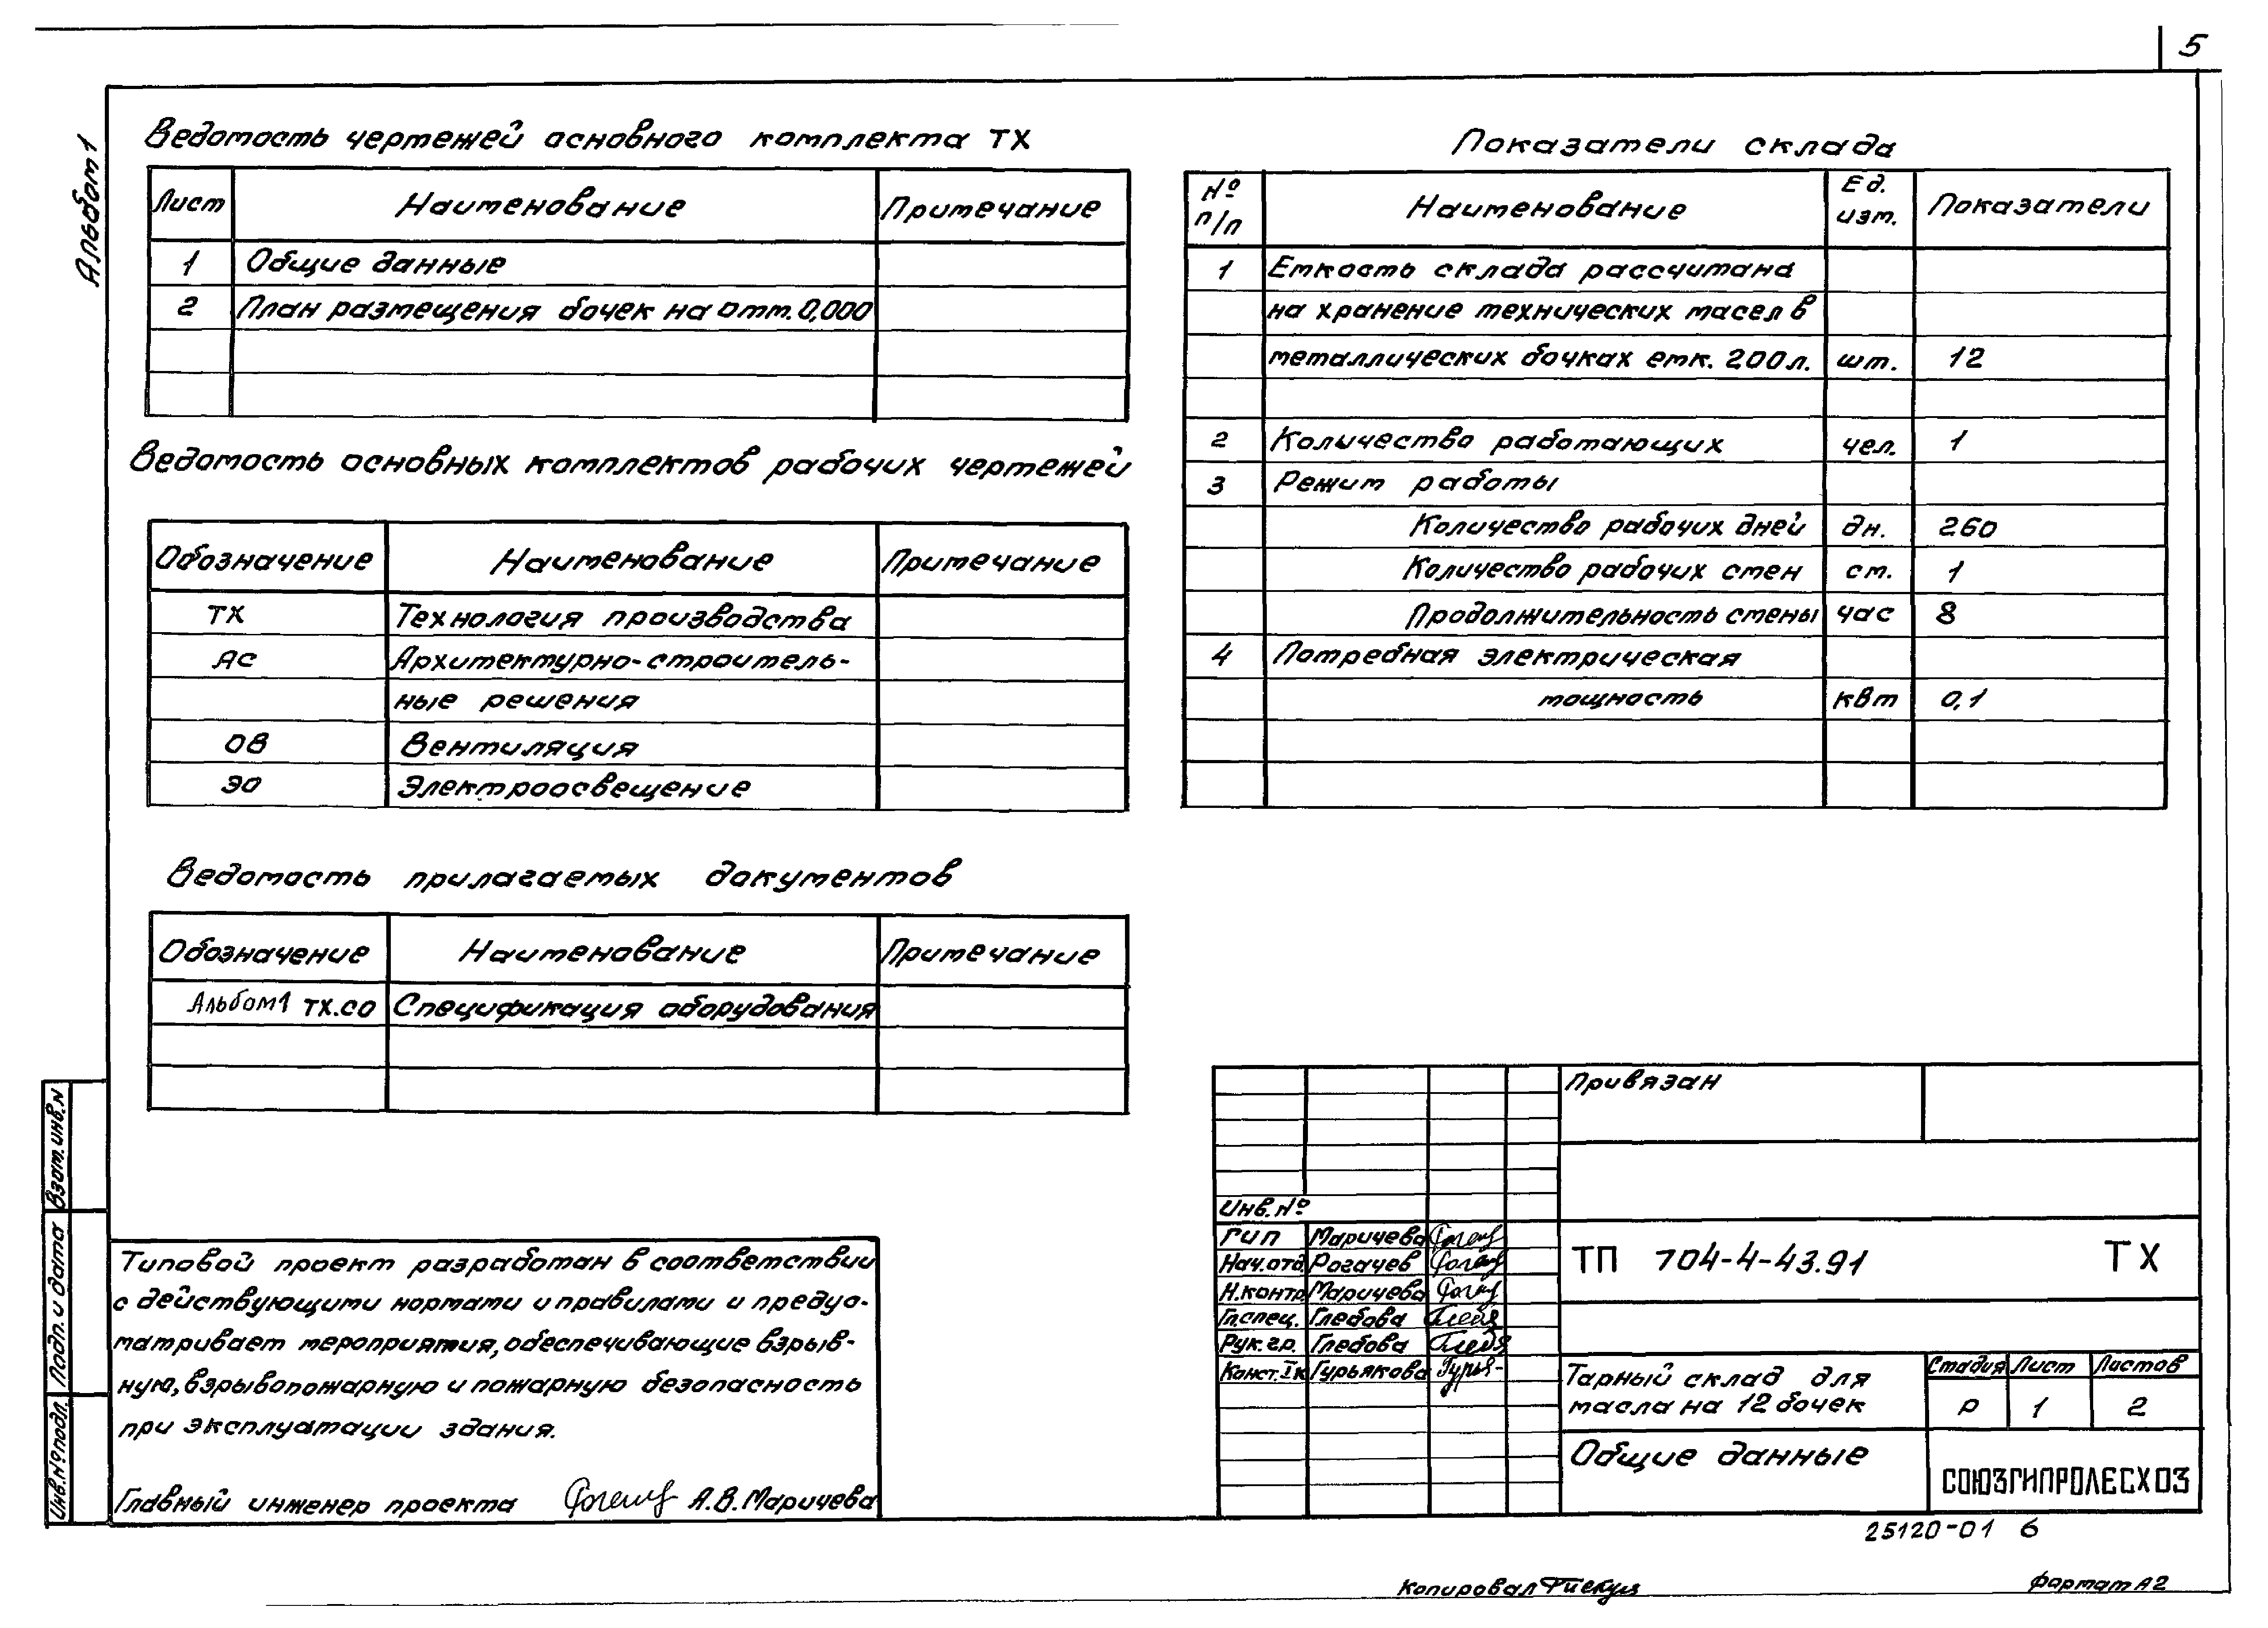 5
Альбом 1
Ведомость чертежей основного комплекта ТХ
Лист Наименование Примечание
1 Общие данные
2 План размещения бочек на отм. 0,000
Ведомость основных комплектов рабочих чертежей
Обозначение Наименование Примечание
ТХ Технология производства
АС Архитектурно-строитель-
ные решения
ОВ Вентиляция
ЭО Электроосвещение
Ведомость прилагаемых документов
Обозначение Наименование Примечание
Альбом 1 ТХ.СО Спецификация оборудования
Показатели склада
№ п/п Наименование Ед. изм. Показатели
1 Емкость склада рассчитана
на хранение технических масел в
металлических бочках емк. 200 л. шт. 12
2 Количество работающих чел. 1
3 Режим работы
Количество рабочих дней дн. 260
Количество рабочих смен см. 1
Продолжительность смены час 8
4 Потребная электрическая
мощность квт 0,1
Типовой проект разработан в соответствии
с действующими нормами и правилами и предус-
матривает мероприятия, обеспечивающие взрыв-
ную, взрывопожарную и пожарную безопасность
при эксплуатации здания.
Главный инженер проекта А.В. Маричева
Взам. инв. N
Подп. и дата
Инв. № подл.
Привязан
Инв. №
ГИП Маричева
Нач. отд. Рогачев
Н. контр. Маричева
Гл. спец. Глебова
Рук. гр. Глебова
Конст. Iк Гурьякова
ТП 704-4-43.91 ТХ
Тарный склад для
масла на 12 бочек
Стадия Лист Листов
Р 1 2
Общие данные
СОЮЗГИПРОЛЕСХОЗ
25120-01 6
Копировал
Формат А2